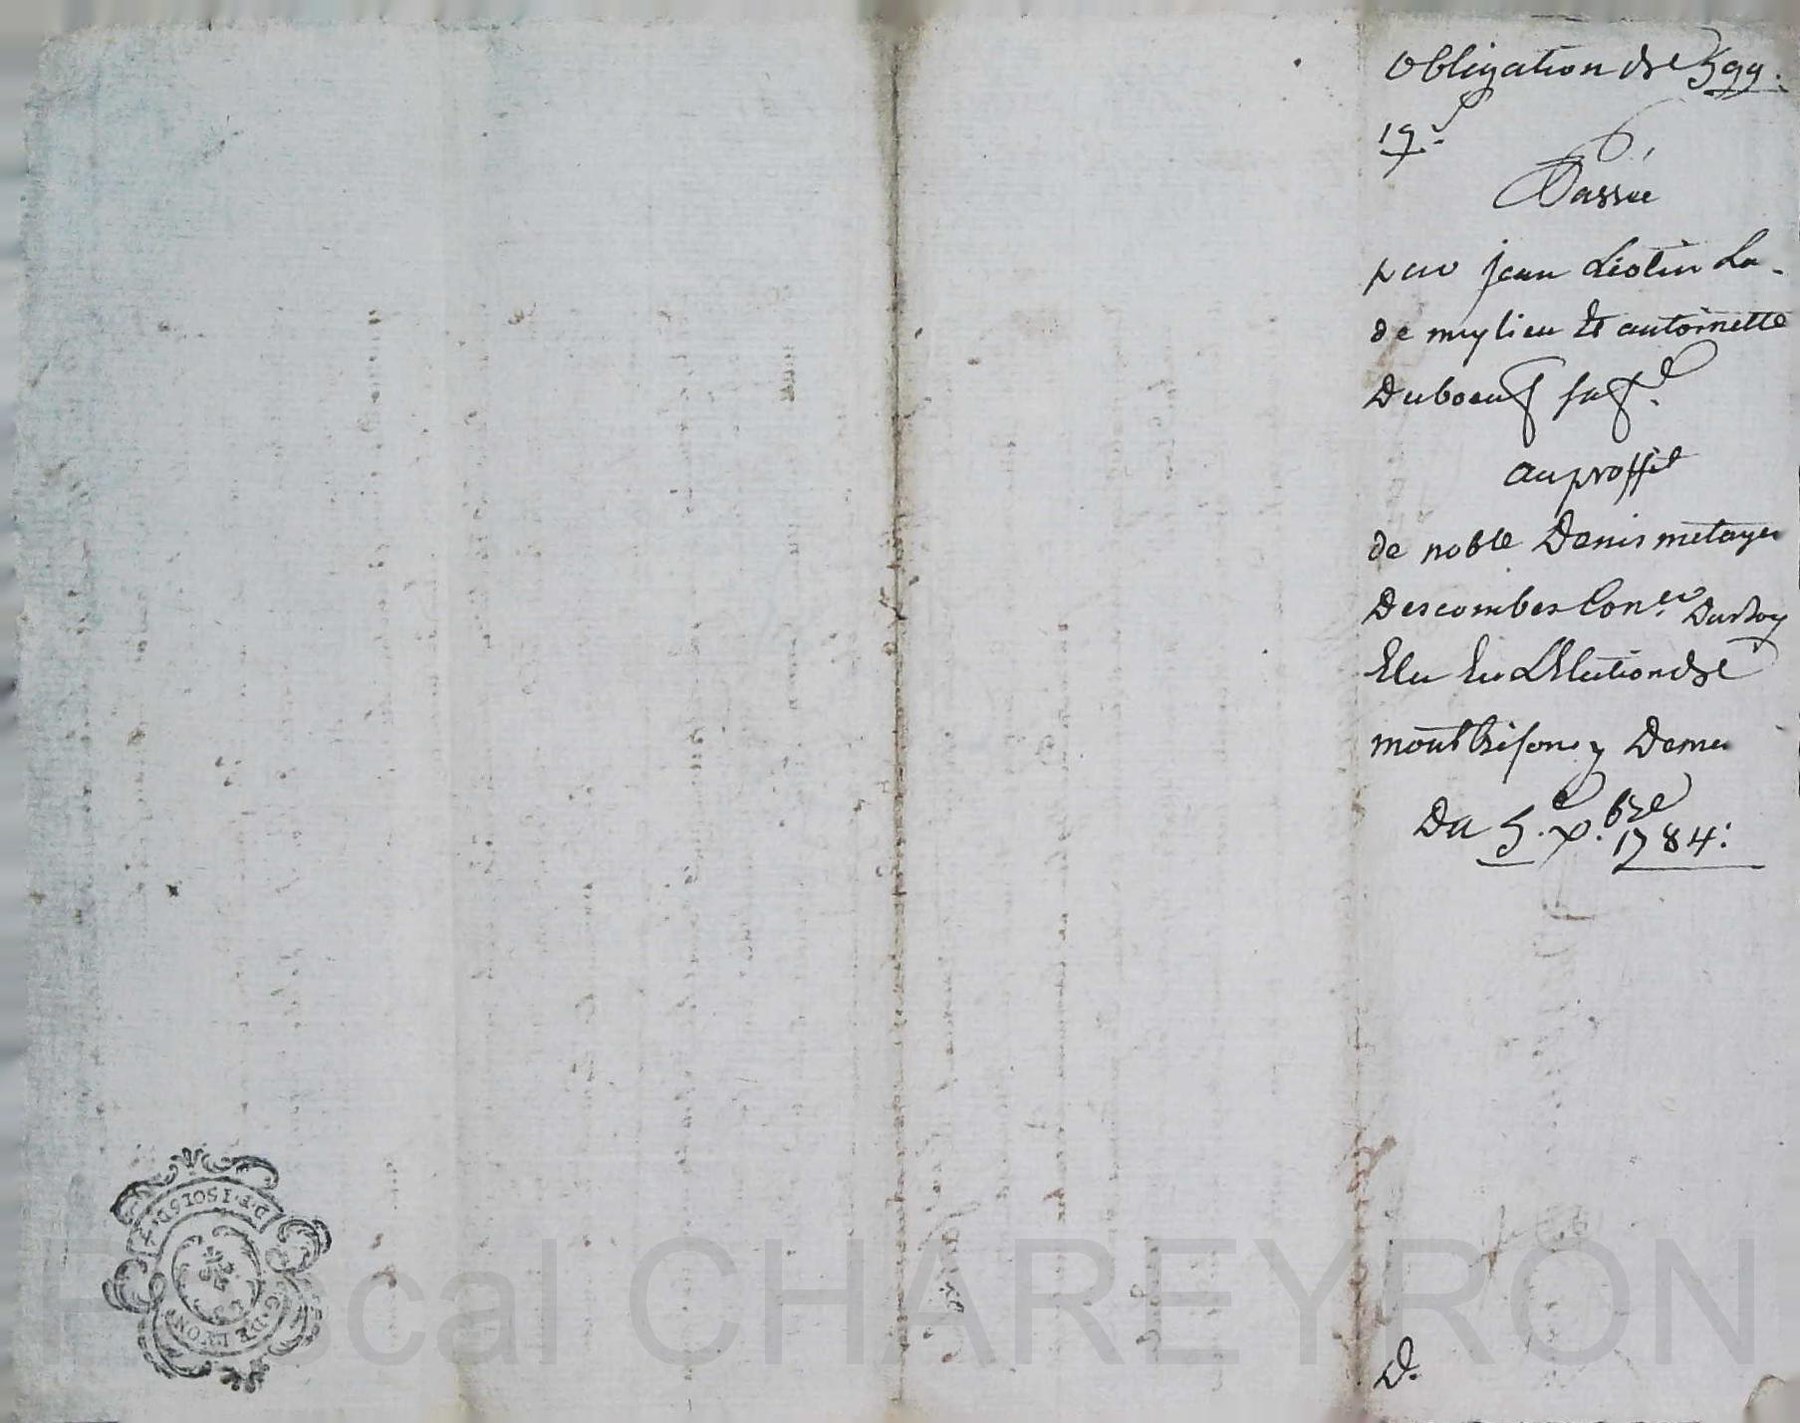 obligation de 599.
19.s
Passée
par jean Liotin La-
de mylieu Et antoinette
Duboeuf sa f.e
au proffit
de noble Denis metayer
Descombes Con.er Du Roy
Elu En L'Election de
montbrison y Demer
Du 5.e X.bre 1784:
D.
D.F.I SOLS D.F
G. DE LYON
Pascal CHAREYRON